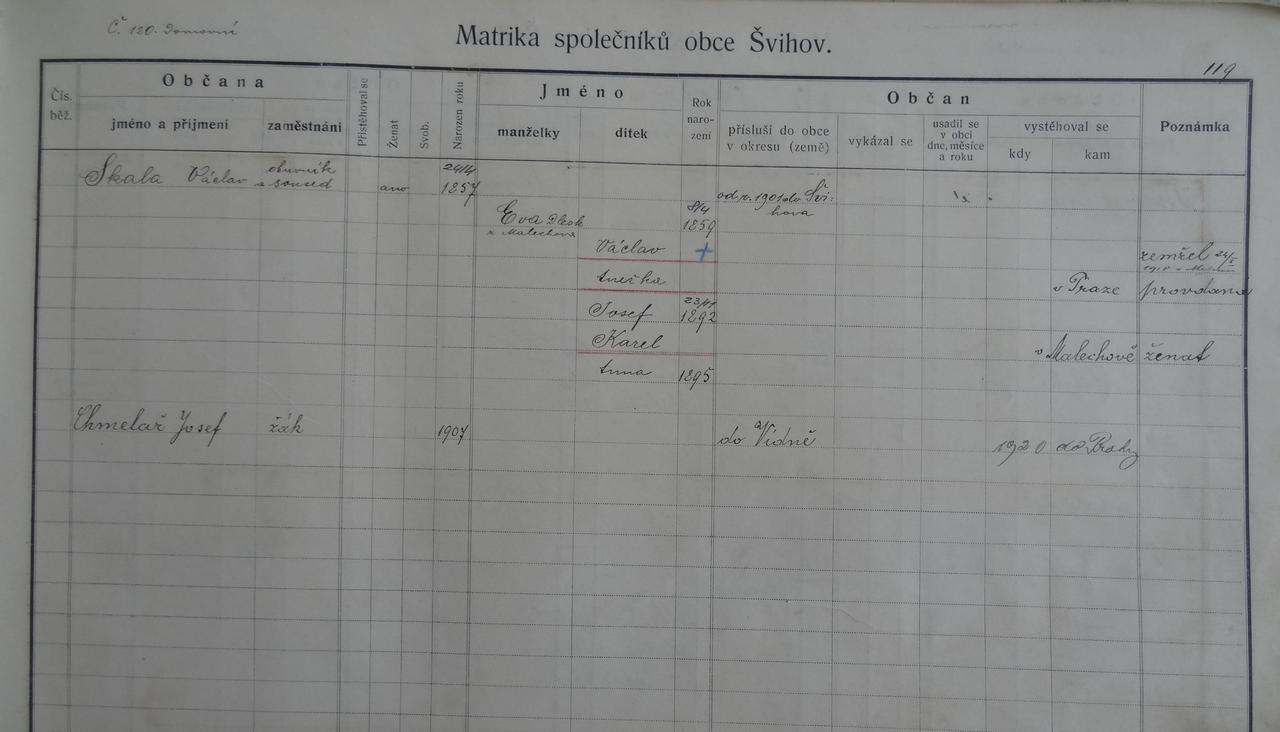 Č. 120. Domovní
Matrika společníků obce Švihov.
119
Čís. běž.
Občana
jméno a příjmení
zaměstnání
Přistěhoval se
Ženat
Svob.
Narozen roku
Jméno
manželky
dítek
Rok naro- zení
Občan
přísluší do obce v okresu (země)
vykázal se
usadil se v obci dne, měsíce a roku
vystěhoval se
kdy
kam
Poznámka
Skala Václav obuvník a soused ano 24/4 1857 od r. 1901 do Švi- hova
Eva z Malechova 8/4 1859
Václav + zemřel 24/5
Anežka v Praze provdana
Josef 23/11 1892
Karel v Malechově ženat
Anna 1895
Chmelař Josef žák 1907 do Vídně 1920 do Prahy